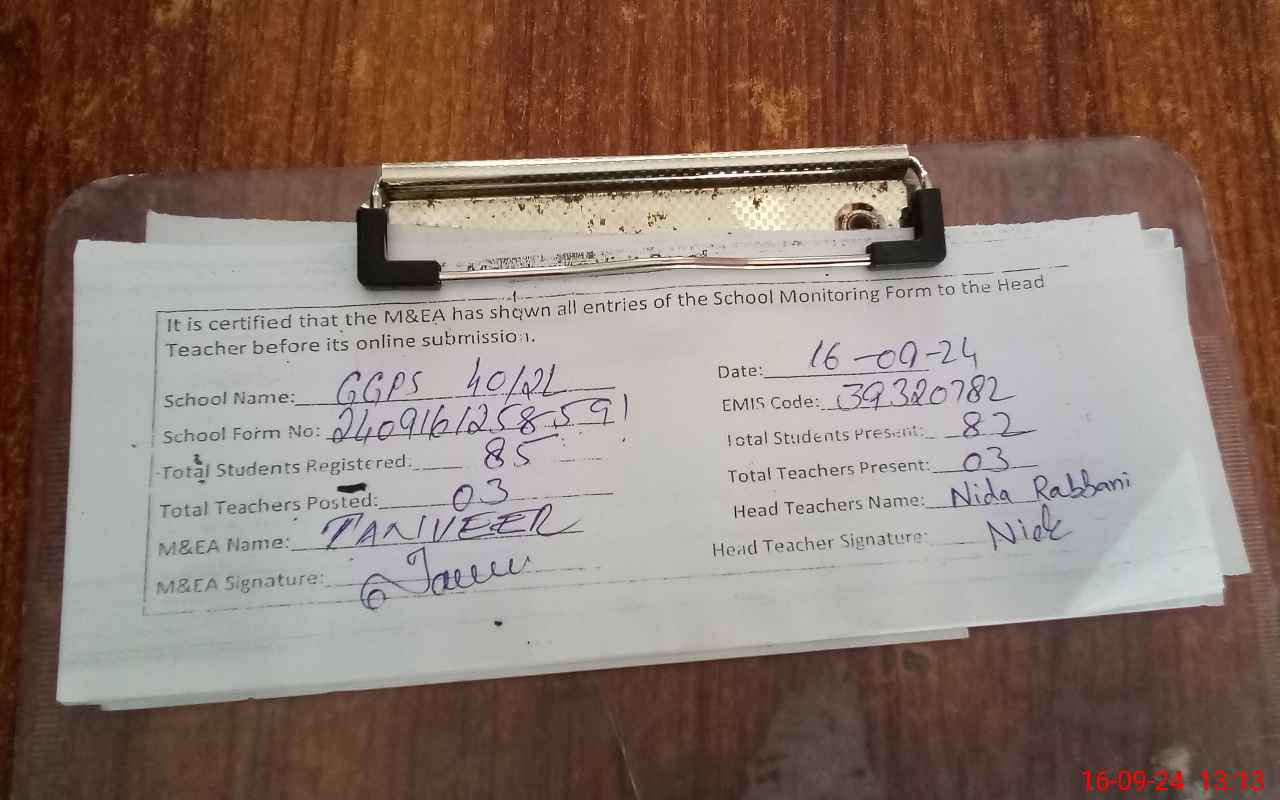 It is certified that the M&EA has shown all entries of the School Monitoring Form to the Head
Teacher before its online submission.
School Name: GGPS 40/2L
Date: 16-09-24
School Form No: 2409161258591
EMIS Code: 39320782
Total Students Registered: 85
Total Students Present: 82
Total Teachers Posted: 03
Total Teachers Present: 03
M&EA Name: TANVEER
Head Teachers Name: Nida Rabbani
M&EA Signature:
Head Teacher Signature: Nida
16-09-24 13:13